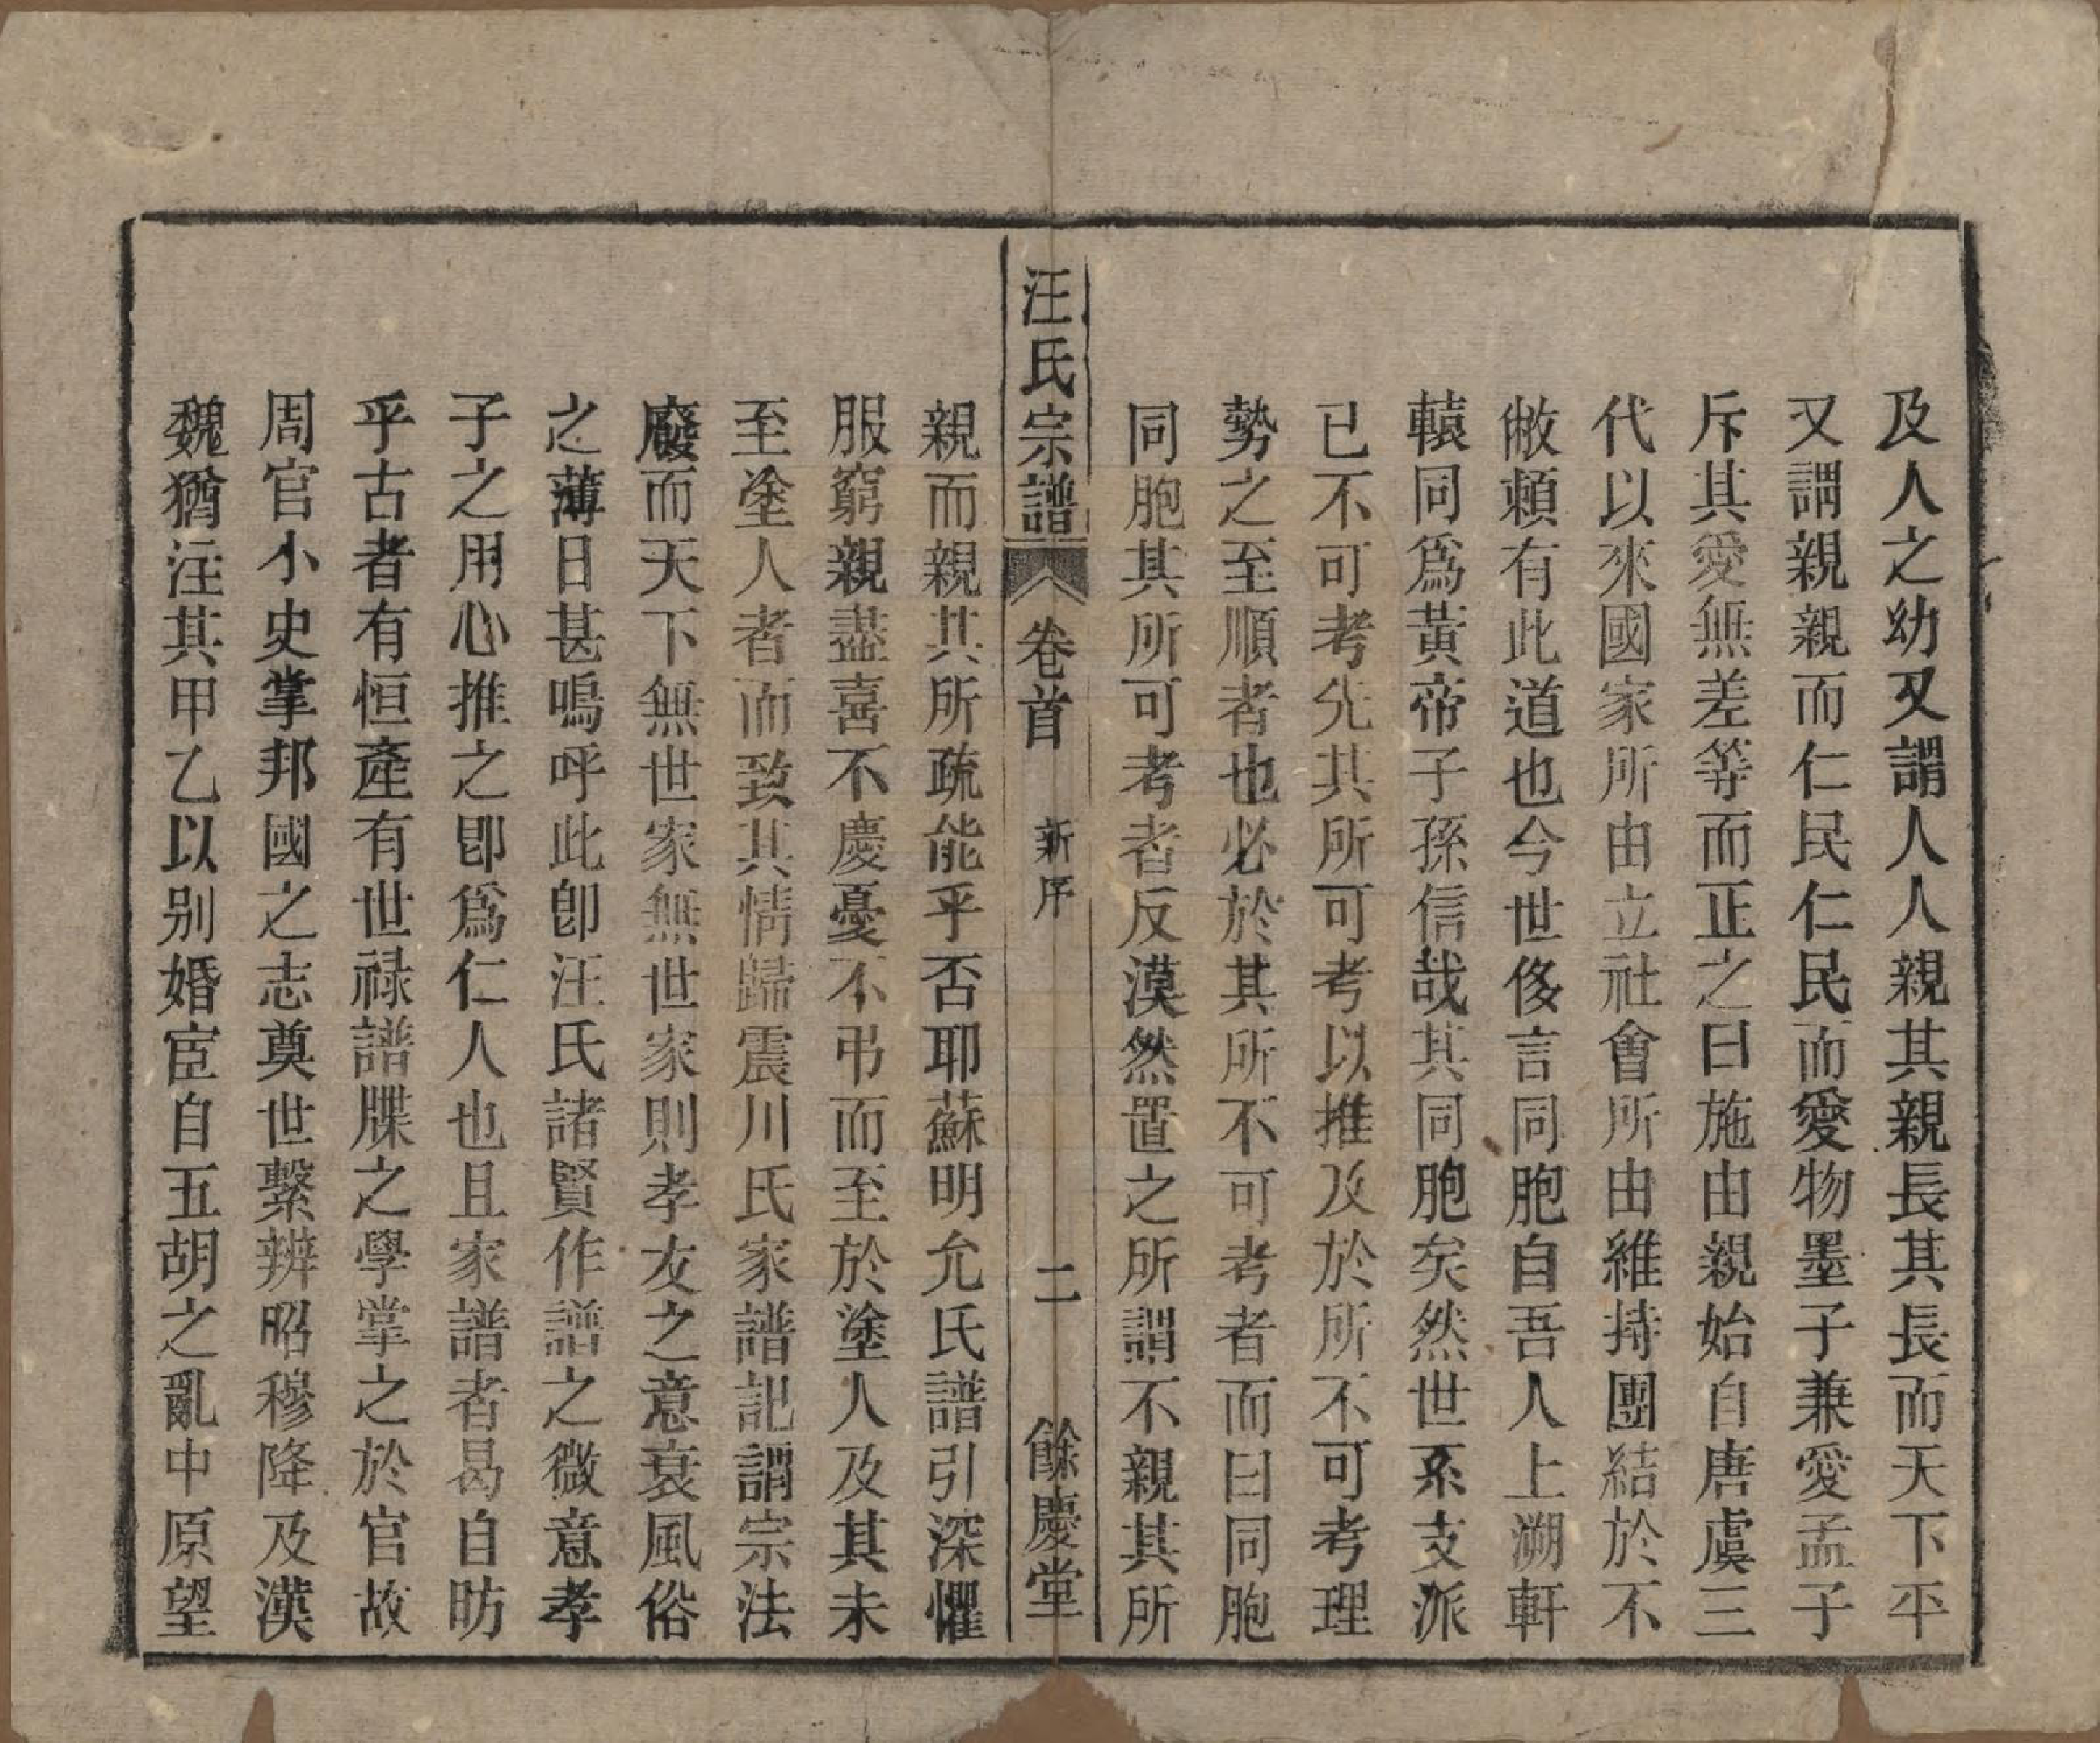 及人之幼又謂人人親其親長其長而天下平
又謂親親而仁民仁民而愛物墨子兼愛孟子
斥其愛無差等而正之曰施由親始自唐虞三
代以來國家所由立社會所由維持團結於不
敝賴有此道也今世侈言同胞自吾人上溯軒
轅同爲黃帝子孫信哉其同胞矣然世系支派
已不可考先其所可考以推及於所不可考理
勢之至順者也必於其所不可考者而曰同胞
同胞其所可考者反漠然置之所謂不親其所
汪氏宗譜 卷首 新序 二 餘慶堂
親而親其所疏能乎否耶蘇明允氏譜引深懼
服窮親盡喜不慶憂不弔而至於塗人及其未
至塗人者而致其情歸震川氏家譜記謂宗法
廢而天下無世家無世家則孝友之意衰風俗
之薄日甚嗚呼此卽汪氏諸賢作譜之微意孝
子之用心推之卽爲仁人也且家譜者曷自昉
乎古者有恒產有世祿譜牒之學掌之於官故
周官小史掌邦國之志奠世繫辨昭穆降及漢
魏猶注其甲乙以别婚宦自五胡之亂中原望